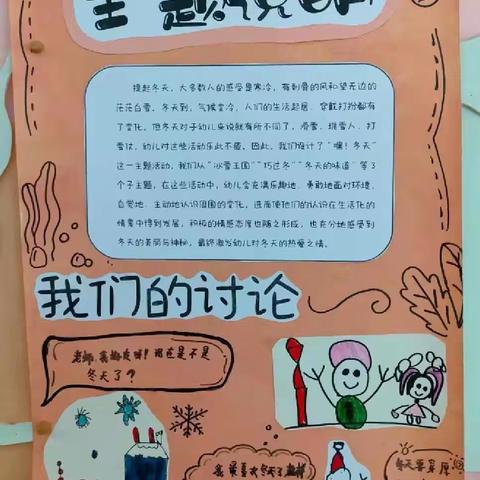 主题说明
提起冬天，大多数人的感受是寒冷，有刺骨的风和望无边的
茫茫白雪，冬天到，气候变冷，人们的生活起居、穿戴打扮都有
了变化，但冬天对于幼儿来说就有所不同了，滑雪、堆雪人、打
雪仗，幼儿对这些活动乐此不疲，因此，我们设计了“嘿！冬天”
这一主题活动，我们从“冰雪王国”“巧过冬”“冬天的味道”等3
个子主题，在这些活动中，幼儿会充满乐趣地、勇敢地面对环境，
自觉地、主动地认识周围的变化，进而使他们的认识在生活化的
情景中得到发展，积极的情感态度也随之形成，也充分地感受到
冬天的美丽与神秘，最终激发幼儿对冬天的热爱之情。
我们的讨论
老师，我好冷呀！现在是不是
冬天了？
我最喜欢冬天了
冬天要来